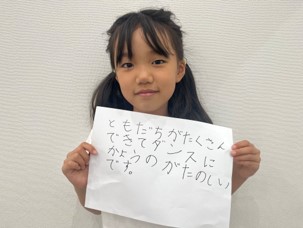 ともだちがたくさん
できてダンスに
かようのがたのしい
です。